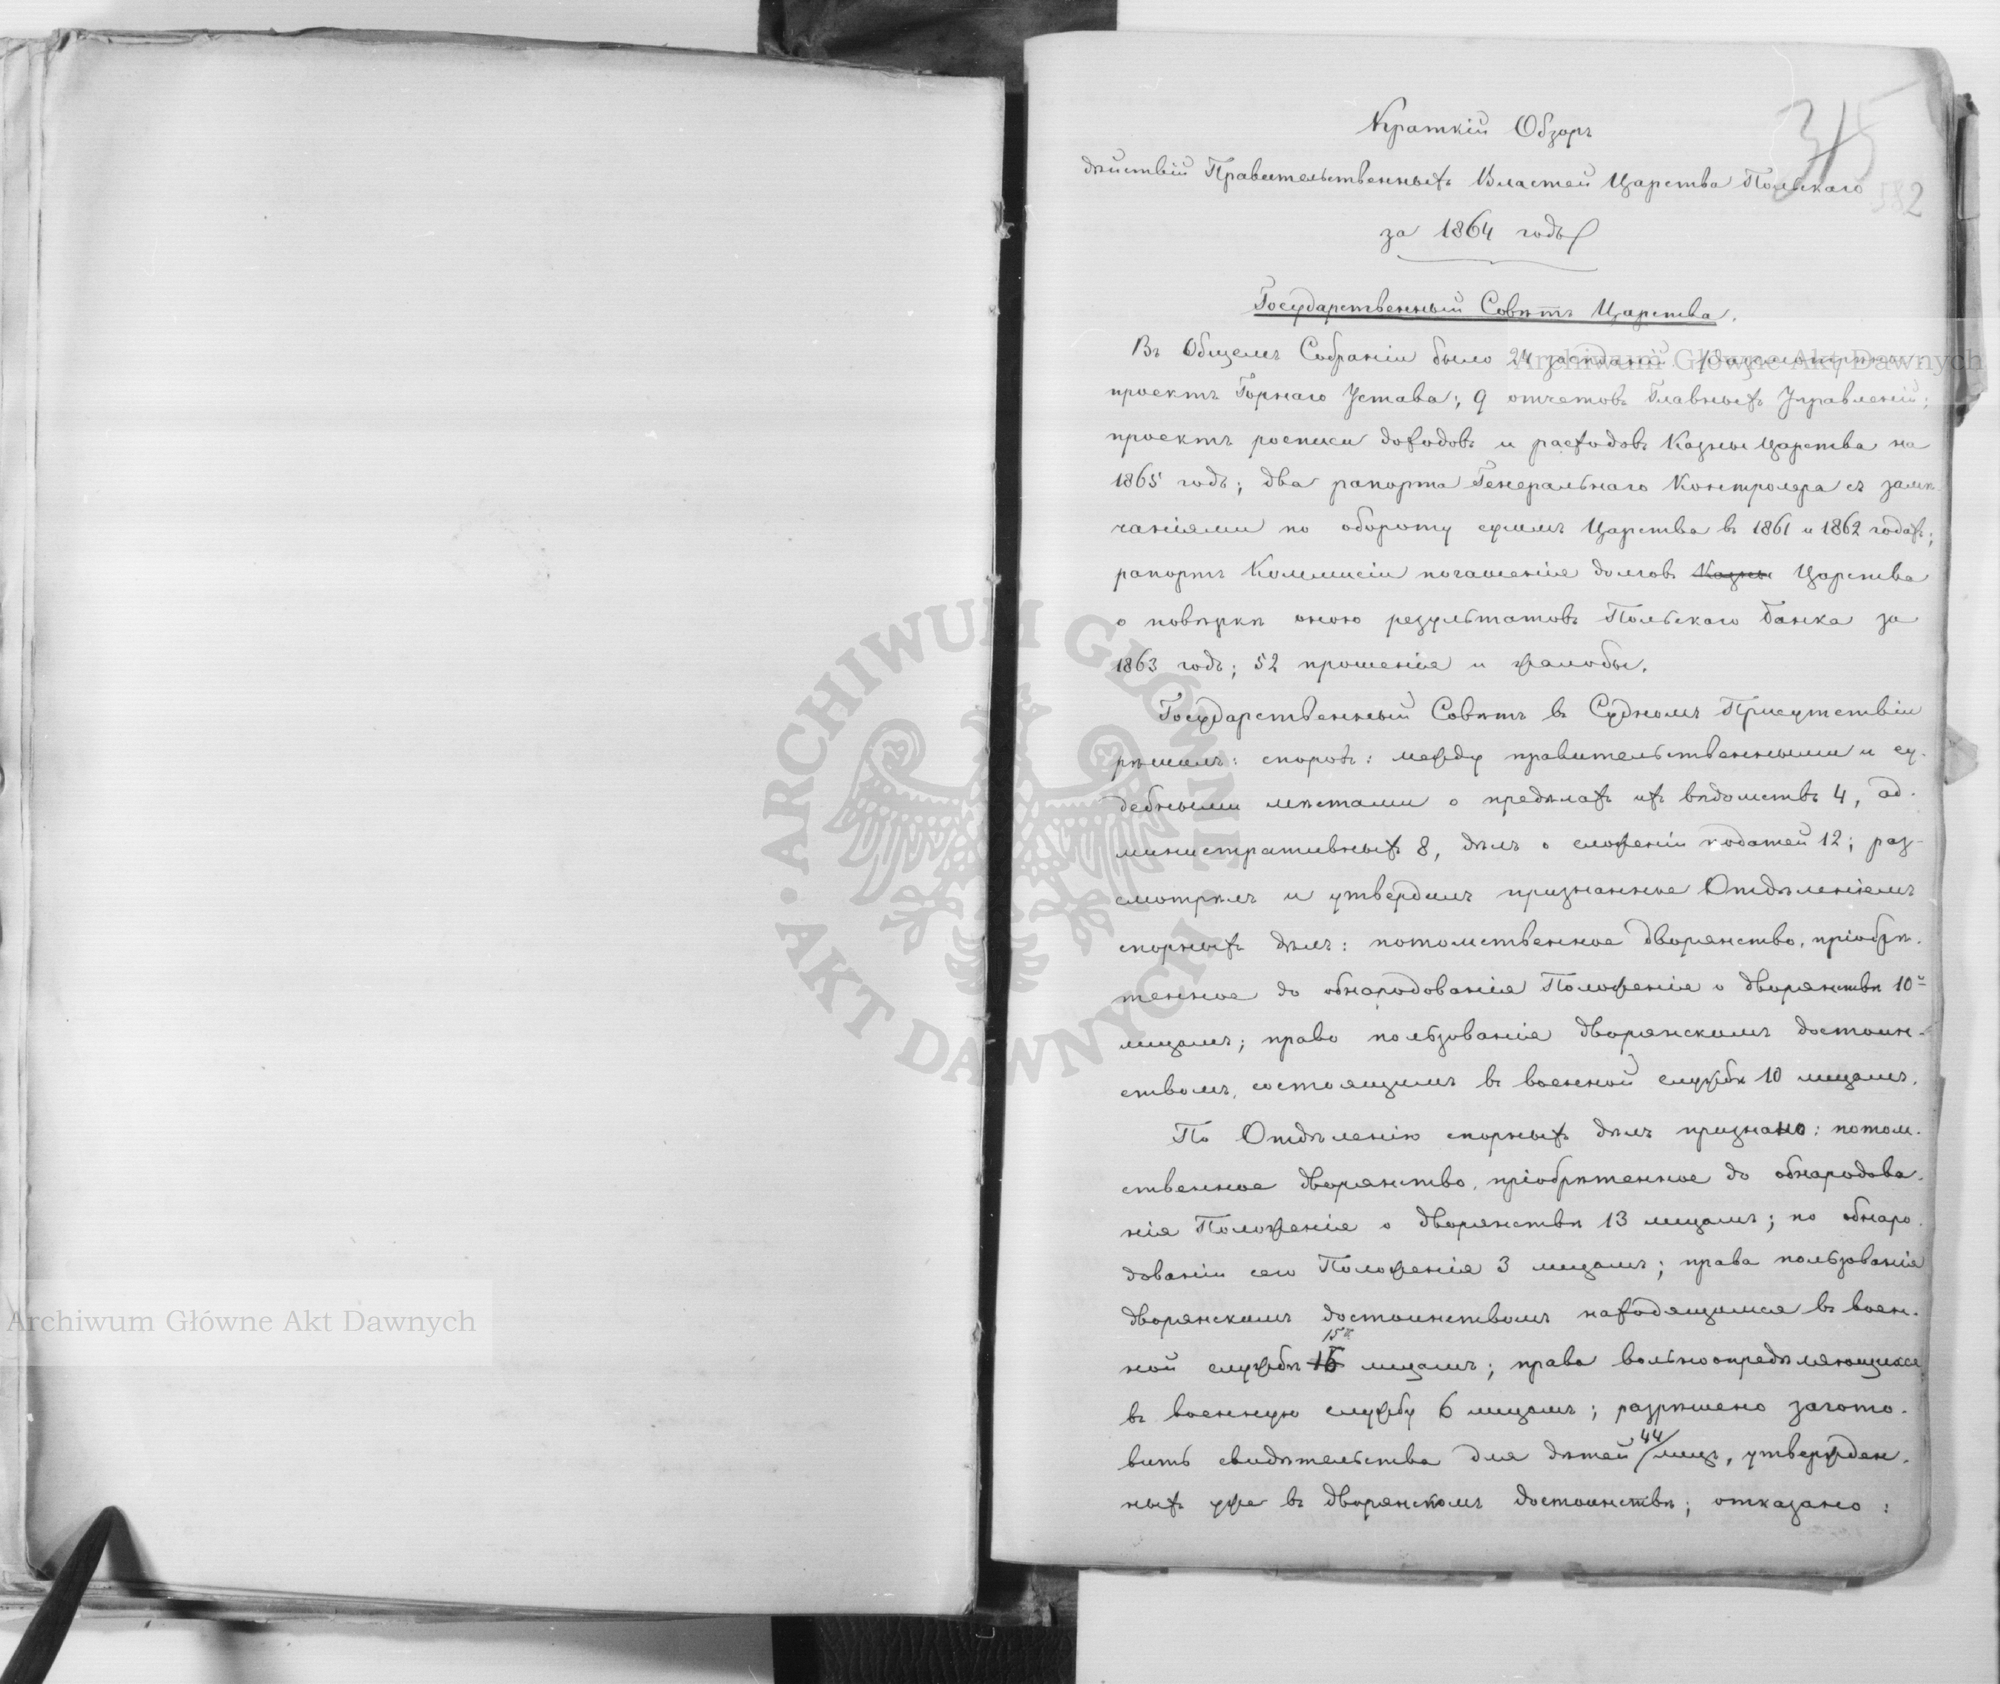 315
382
Краткій Обзоръ
дѣйствій Правительственныхъ Властей Царства Польскаго
за 1864 годъ
Государственный Совѣтъ Царства.
Въ Общемъ Собраніи было 24 засѣданій. Разсмотрѣно:
проектъ Горнаго Устава; 9 отчетовъ Главныхъ Управленій;
проектъ росписи доходовъ и расходовъ Казны Царства на
1865 годъ; два рапорта Генеральнаго Контролера съ замѣ-
чаніями по обороту суммъ Царства въ 1861 и 1862 годахъ;
рапортъ Коммисіи погашенія долговъ Казны Царства
о повѣркѣ оною результатовъ Польскаго банка за
1863 годъ; 52 прошенія и жалобы.
Государственный Совѣтъ въ Судномъ Присутствіи
рѣшилъ: споровъ: между правительственными и су-
дебными мѣстами о предѣлахъ ихъ вѣдомствъ 4, ад-
министративныхъ 8, дѣлъ о сложеніи податей 12; раз-
смотрѣлъ и утвердилъ признанное Отдѣленіемъ
спорныхъ дѣлъ: потомственное дворянство, пріобрѣ-
тенное до обнародованія Положенія о дворянствѣ 10и
лицамъ; право пользованія дворянскимъ достоин-
ствомъ, состоящимъ въ военной службѣ 10 лицамъ.
По Отдѣленію спорныхъ дѣлъ признано: потом-
ственное дворянство, пріобрѣтенное до обнародова-
нія Положенія о дворянствѣ 13 лицамъ; по обнаро-
дованіи сего Положенія 3 лицамъ; права пользованія
дворянскимъ достоинствомъ находящимся въ воен-
15и
ной службѣ 16 лицамъ; права вольноопредѣляющихся
въ военную службу 6 лицамъ; разрѣшено загото-
44
вить свидѣтельства для дѣтей лицъ, утвержден-
ныхъ уже въ дворянскомъ достоинствѣ; отказано:
Archiwum Główne Akt Dawnych
Archiwum Główne Akt Dawnych
ARCHIWUM GŁÓWNE · AKT DAWNYCH ·